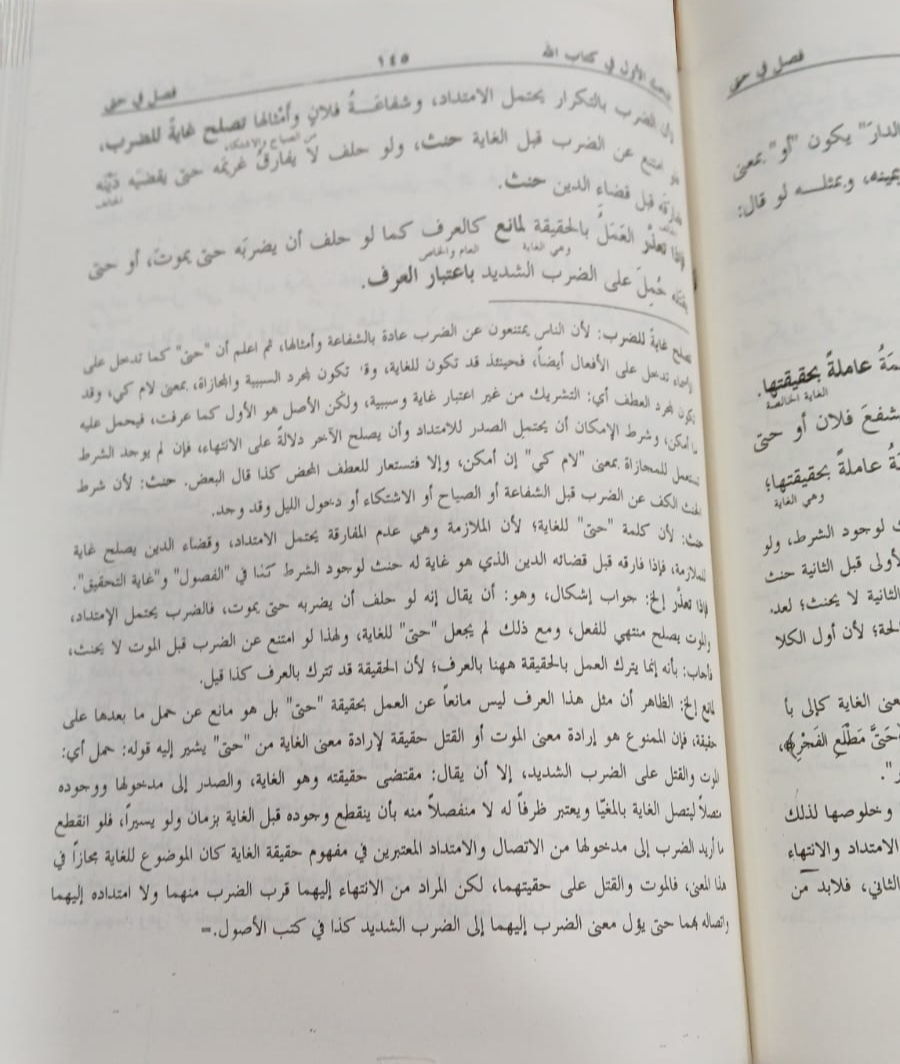 فصل في حتى
الدار" يكون "أو" بمعنى
يمينه، وبمثله لو قال:
عاملةً بحقيقتها.
الغاية الخالصة
يشفعَ فلان أو حتى
عاملةً بحقيقتها؛
وهي الغاية
لوجود الشرط، ولو
الأولى قبل الثانية حنث
الثانية لا يحنث؛ لعد
لأن أول الكلا
معنى الغاية كإلى
حَتَّى مَطْلَعِ الفَجْرِ﴾،
وخلوصها لذلك
الامتداد والانتهاء
الثاني، فلابد من
الأول في كتاب الله
١٤٥
فصل في حتى
الضرب بالتكرار يحتمل الامتداد، وشفاعةُ فلانٍ وأمثالها تصلح غايةً للضرب،
من الصياح والاشتكاء
امتنع عن الضرب قبل الغاية حنث، ولو حلف لا يفارقُ غريمَه حتى يقضيَه دَيْنَه
الحالف
قبل قضاءِ الدين حنث.
فإذا تعذّر العَمَلُ بالحقيقة لمانع كالعرف كما لو حلف أن يضربَه حتى يموتَ، أو حتى
وهي الغاية
العام والخاص
حُمِلَ على الضرب الشديد باعتبار العرف.
تصلح غايةً للضرب: لأن الناس يمتنعون عن الضرب عادة بالشفاعة وأمثالها، ثم اعلم أن "حتى" كما تدخل على
تدخل على الأفعال أيضاً، فحينئذ قد تكون للغاية، تكون لمجرد السببية والمجازاة، بمعنى لام كي، وقد
تكون لمجرد العطف أي: التشريك من غير اعتبار غاية وسببية، ولكن الأصل هو الأول كما عرفت، فيحمل عليه
ما أمكن، وشرط الإمكان أن يحتمل الصدر للامتداد وأن يصلح الآخر دلالةً على الانتهاء، فإن لم يوجد الشرط
تستعمل للمجازاة بمعنى "لام كي" إن أمكن، وإلا فتستعار للعطف المحض كذا قال البعض. حنث: لأن شرط
الحنث الكف عن الضرب قبل الشفاعة أو الصياح أو الاشتكاء أو دخول الليل وقد وجد.
حنث: لأن كلمة "حتى" للغاية؛ لأن الملازمة وهي عدم المفارقة يحتمل الامتداد، وقضاء الدين يصلح غاية
للملازمة، فإذا فارقه قبل قضائه الدين الذي هو غاية له حنث لوجود الشرط كذا في "الفصول" و"غاية التحقيق".
فإذا تعذّر إلخ: جواب إشكال، وهو: أن يقال إنه لو حلف أن يضربه حتى يموت، فالضرب يحتمل الإمتداد،
والموت يصلح منتهي للفعل، ومع ذلك لم يجعل "حتى" للغاية، ولهذا لو امتنع عن الضرب قبل الموت لا يحنث،
فأجاب: بأنه إنما يترك العمل بالحقيقة ههنا بالعرف؛ لأن الحقيقة قد تترك بالعرف كذا قيل.
لمانع إلخ: الظاهر أن مثل هذا العرف ليس مانعاً عن العمل بحقيقة "حتى" بل هو مانع عن حمل ما بعدها على
حقيقة، فإن الممنوع هو إرادة معنى الموت أو القتل حقيقة لإرادة معنى الغاية من "حتى" يشير إليه قوله: حمل أي:
الموت والقتل على الضرب الشديد، إلا أن يقال: مقتضى حقيقته وهو الغاية، والصدر إلى مدخولها ووجوده
متصلاً ليتصل الغاية بالمغيّا ويعتبر ظرفاً له لا منفصلاً منه بأن ينقطع وجوده قبل الغاية بزمان ولو يسيراً، فلو انقطع
ما أريد الضرب إلى مدخولها من الاتصال والامتداد المعتبرين في مفهوم حقيقة الغاية كان الموضوع للغاية مجازاً في
هذا المعنى، فالموت والقتل على حقيتهما، لكن المراد من الانتهاء إليهما قرب الضرب منهما ولا امتداده إليهما
واتصاله بهما حتى يؤل معنى الضرب إليهما إلى الضرب الشديد كذا في كتب الأصول.=